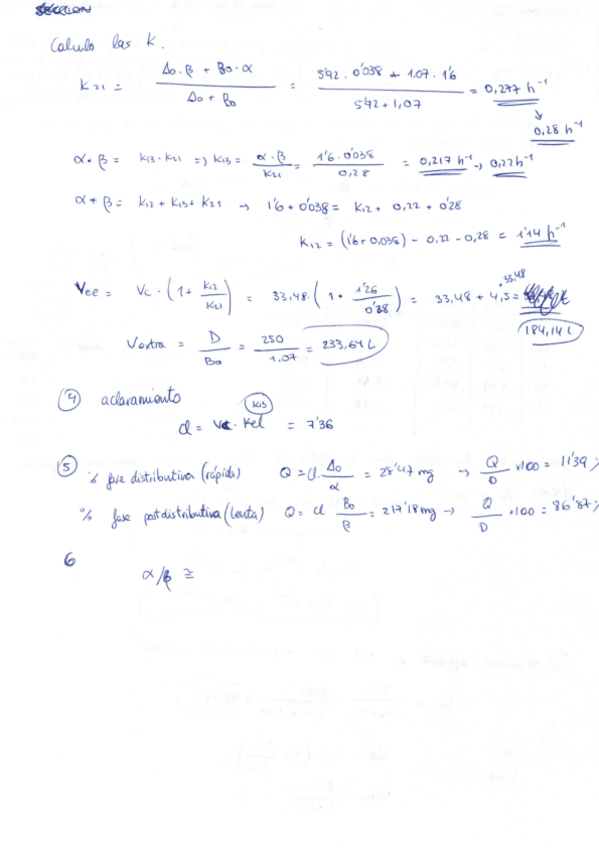 Calculo las K.
K21 = (A0·β + B0·α) / (A0 + B0) = (5'92 · 0'038 + 1,07 · 1'6) / (5'92 + 1,07) = 0,277 h⁻¹
↓ 0,28 h⁻¹
α·β = K13·K21 => K13 = α·β / K21 = 1'6·0'038 / 0,28 = 0,217 h⁻¹ → 0,22 h⁻¹
α + β = K12 + K13 + K21 → 1'6 + 0'038 = K12 + 0,22 + 0'28
K12 = (1'6 + 0,038) - 0,22 - 0,28 = 1'14 h⁻¹
Vee = Vc · (1 + K12/K21) = 33,48 · (1 + 1'26/0'28) = 33,48 + 4,5 · 33,48 =
184,14 L
Vextra = D/B0 = 250/1,07 = 233,64 L
④ aclaramiento
K13
Cl = Vc · Kel = 7'36
⑤ % fase distributiva (rápida) Q = Cl · A0/α = 28'47 mg → Q/D ×100 = 11'39 %
% fase postdistributiva (lenta) Q = Cl B0/β = 217'18 mg → Q/D ·100 = 86'87 %
6
α/β ≅